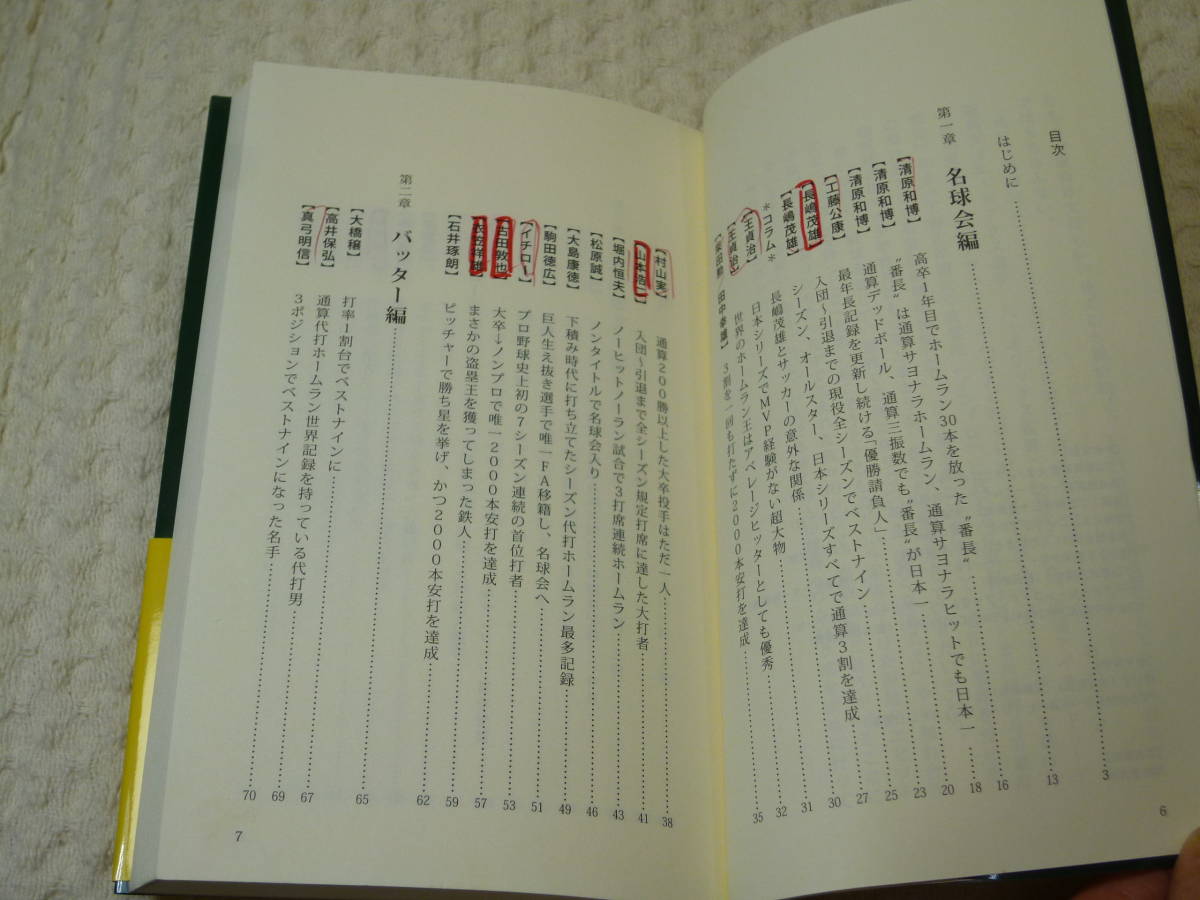 目次
はじめに 3
第一章 名球会編 13
【清原和博】 高卒1年目でホームラン30本を放った〝番長〟 16
【清原和博】 〝番長〟は通算サヨナラホームラン、通算サヨナラヒットでも日本一 18
【清原和博】 通算デッドボール、通算三振数でも〝番長〟が日本一 20
【工藤公康】 最年長記録を更新し続ける「優勝請負人」 23
【長嶋茂雄】 入団～引退までの現役全シーズンでベストナイン 25
【長嶋茂雄】 シーズン、オールスター、日本シリーズすべてで通算3割を達成 27
＊コラム＊ 長嶋茂雄とサッカーの意外な関係 30
【王貞治】 日本シリーズでMVP経験がない超大物 31
【王貞治】 世界のホームラン王はアベレージヒッターとしても優秀 32
【柴田勲／田中幸雄】 3割を一回も打たずに2000本安打を達成 35
6
【村山実】 通算200勝以上した大卒投手はただ一人 38
【山本浩二】 入団～引退まで全シーズン規定打席に達した大打者 41
【堀内恒夫】 ノーヒットノーラン試合で3打席連続ホームラン 43
【松原誠】 ノンタイトルで名球会入り 46
【大島康徳】 下積み時代に打ち立てたシーズン代打ホームラン最多記録 49
【駒田徳広】 巨人生え抜き選手で唯一FA移籍し、名球会へ 51
【イチロー】 プロ野球史上初の7シーズン連続の首位打者 53
【古田敦也】 大卒→ノンプロで唯一2000本安打を達成 57
【衣笠祥雄】 まさかの盗塁王を獲ってしまった鉄人 59
【石井琢朗】 ピッチャーで勝ち星を挙げ、かつ2000本安打を達成 62
第二章 バッター編 65
【大橋穣】 打率1割台でベストナインに 67
【高井保弘】 通算代打ホームラン世界記録を持っている代打男 69
【真弓明信】 3ポジションでベストナインになった名手 70
7